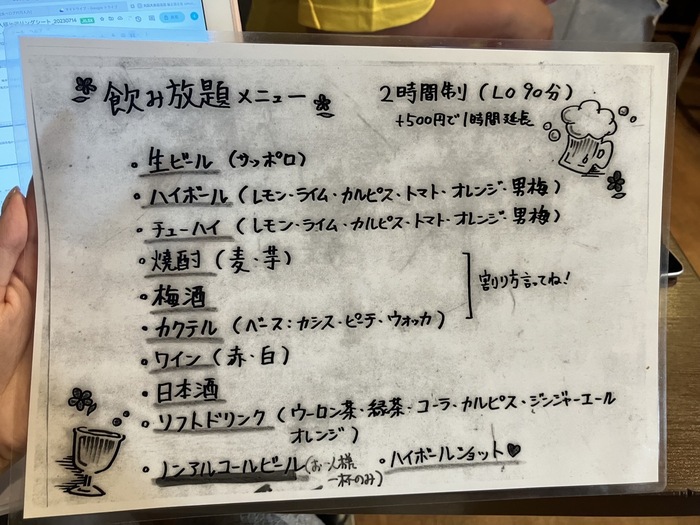 飲み放題メニュー
2時間制(LO 90分)
+500円で1時間延長
・生ビール(サッポロ)
・ハイボール(レモン・ライム・カルピス・トマト・オレンジ・男梅)
・チューハイ(レモン・ライム・カルピス・トマト・オレンジ・男梅)
・焼酎(麦・芋)
・梅酒
・カクテル(ベース:カシス・ピーチ・ウォッカ)
割り方言ってね!
・ワイン(赤・白)
・日本酒
・ソフトドリンク(ウーロン茶・緑茶・コーラ・カルピス・ジンジャーエール
オレンジ)
・ノンアルコールビール(お一人様
一杯のみ)
・ハイボールショット♥